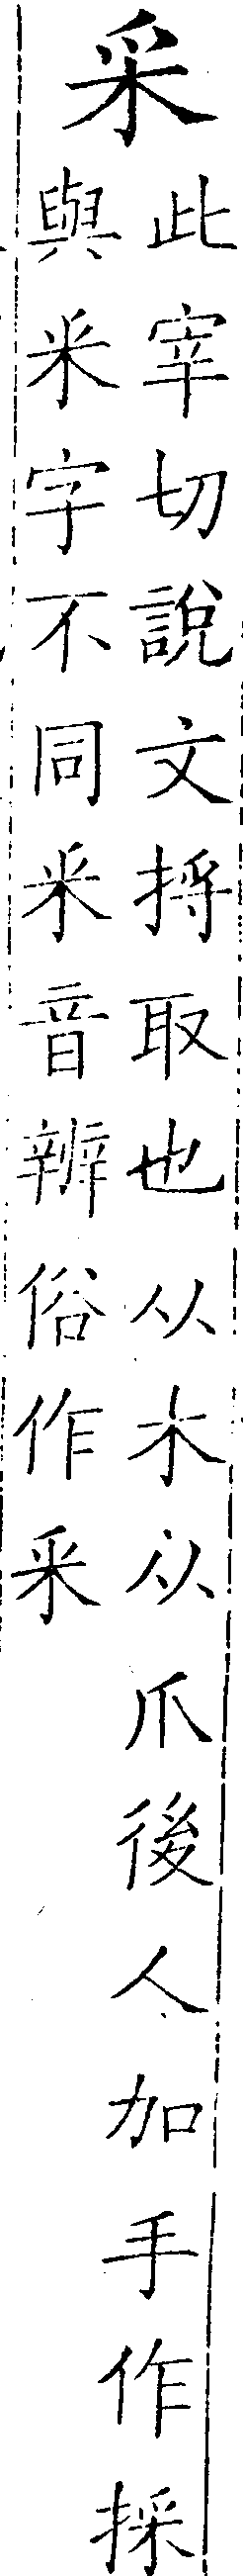 采
此宰切說文捋取也从木从爪後人加手作採
與釆字不同釆音辨俗作采